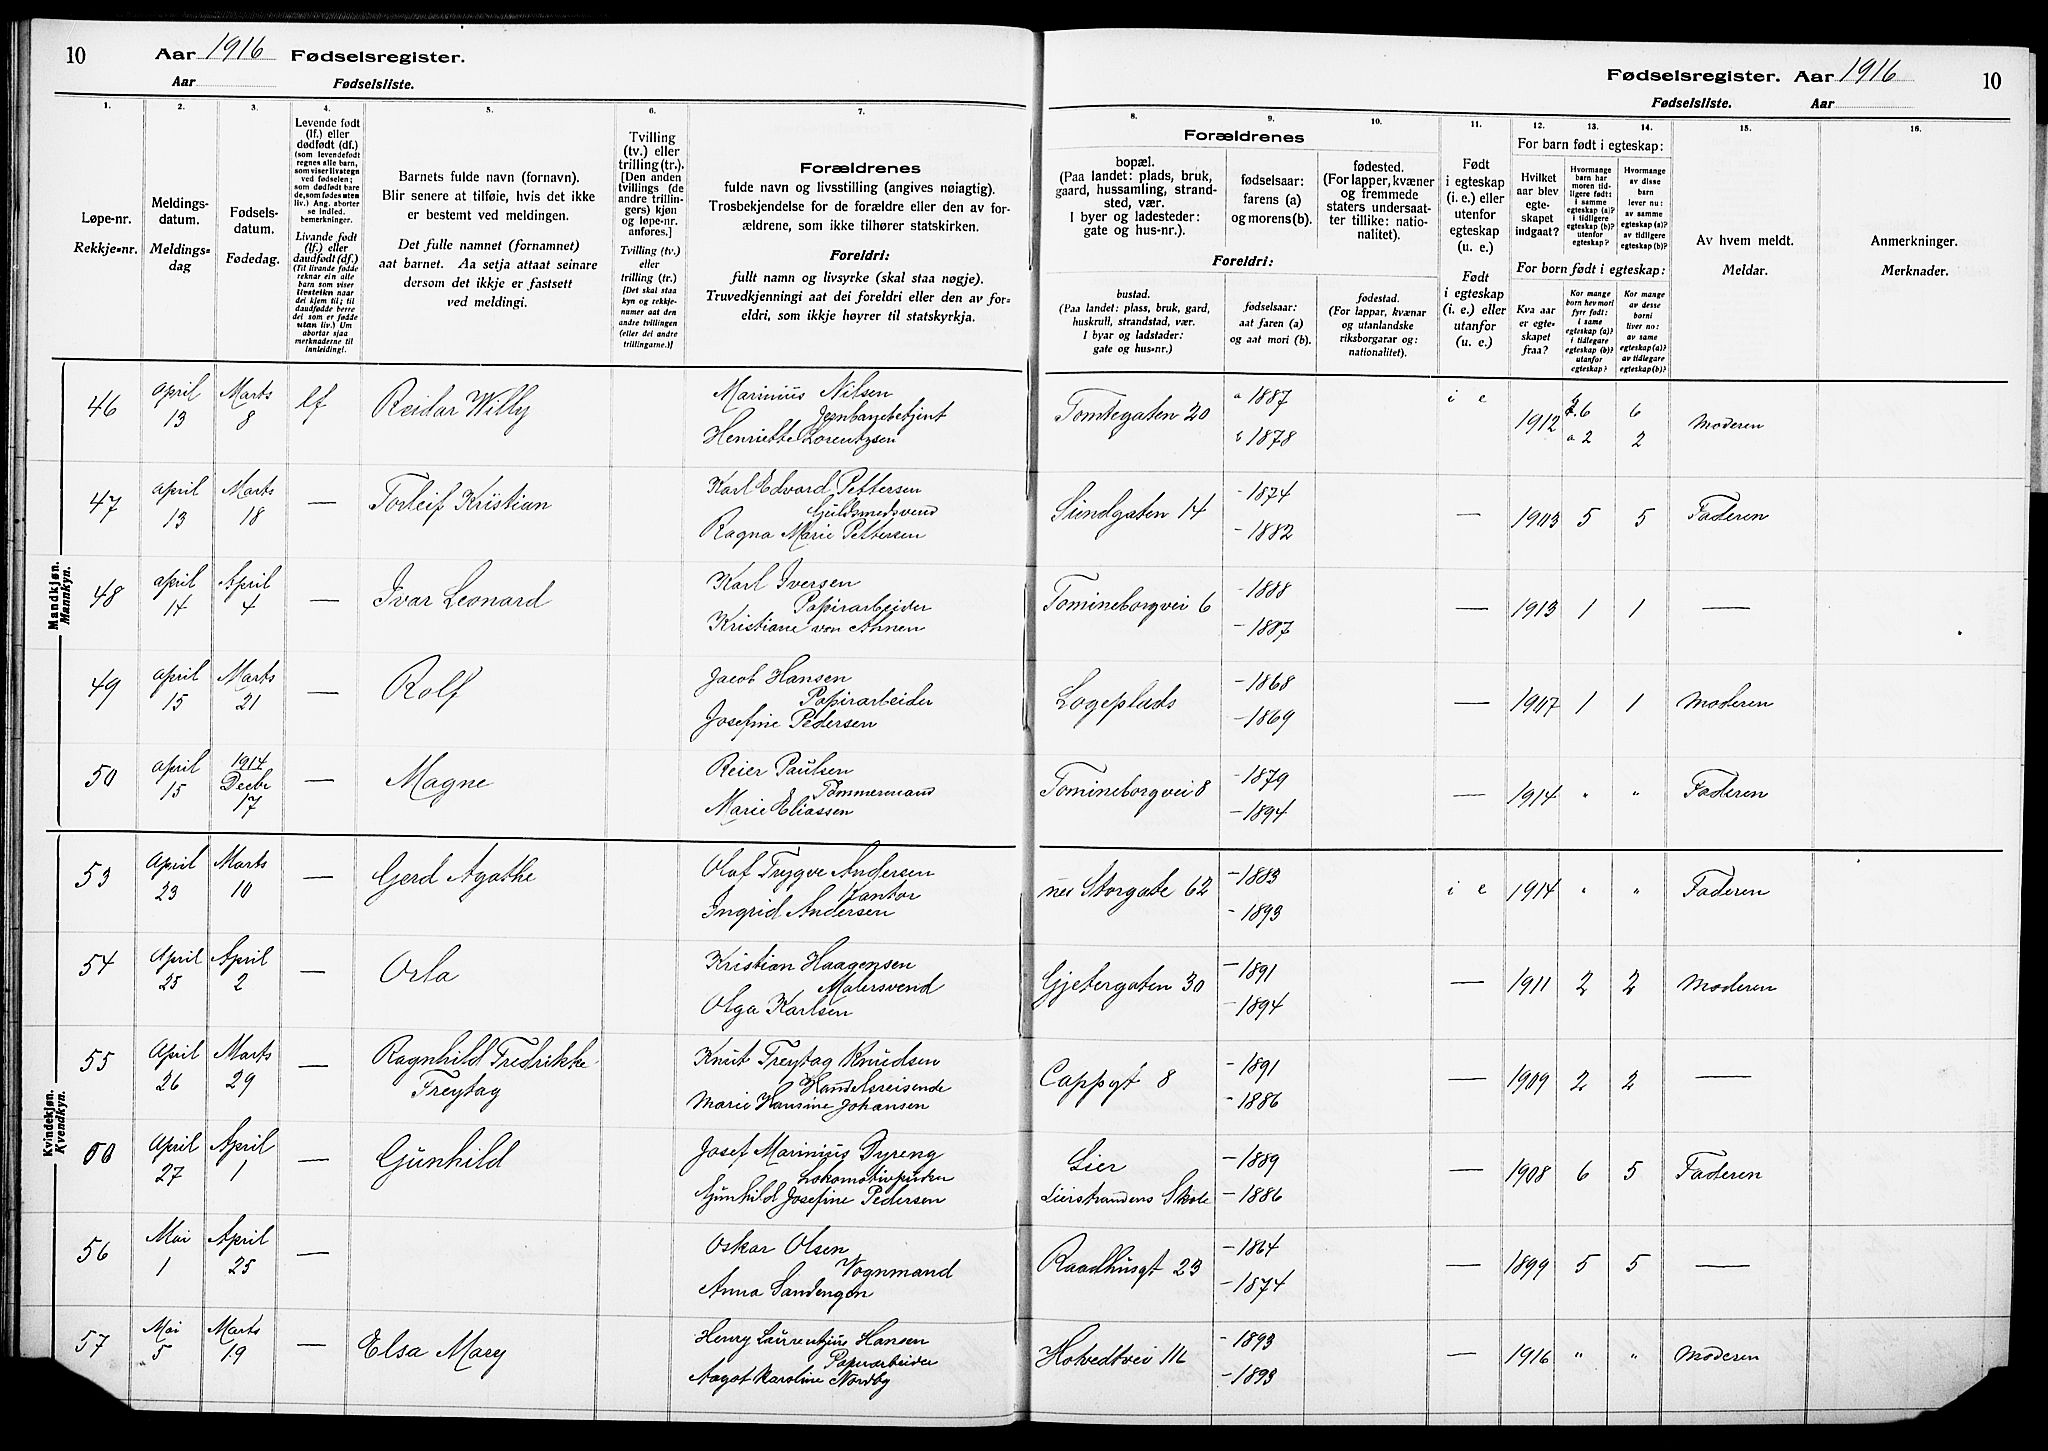 10 Aar 1916 Fødselsregister.
Aar Fødselsliste.
Fødselsregister. Aar 1916 10
Fødselsliste. Aar
1. 2. 3. 4. 5. 6. 7. 8. 9. 10. 11. 12. 13. 14. 15. 16.
Løpe-nr.
Rekkje=nr.
Meldings-
datum.
Meldings=
dag
Fødsels-
datum.
Fødedag.
Levende født
(lf.) eller
dødfødt (df.)
(som levendefødt
regnes alle barn,
som viser livstegn
ved fødselen;
som dødfødt bare
de, som fødes uten
liv.) Ang. aborter
se indled.
bemerkninger.
Livande født
(lf.) eller
daudfødt (df.)
(Til livande fødde
reknar ein alle
born som viser
livsteikn naar
dei kjem til; til
daudfødde berre
dei som er fødde
utan liv.) Um
abortar sjaa
merknaderne til
innleiding!.
Barnets fulde navn (fornavn).
Blir senere at tilføie, hvis det ikke
er bestemt ved meldingen.
Det fulle namnet (fornamnet)
aat barnet. Aa setja attaat seinare
dersom det ikkje er fastsett
ved meldingi.
Tvilling
(tv.) eller
trilling (tr.).
[Den anden
tvillings (de
andre trillin-
gers) kjøn
og løpe-nr.
anføres.]
Tvilling (tv.)
eller
trilling (tr.)
[Det skal staa
kyn og rekkje-
numer aat den
andre tvillingen
(eller dei andre
trillingarne.)]
Forældrenes
fulde navn og livsstilling (angives nøiagtig).
Trosbekjendelse for de forældre eller den av for-
ældrene, som ikke tilhører statskirken.
Foreldri:
fullt namn og livsyrke (skal staa nøgje).
Truvedkjenningi aat dei foreldri eller den av for-
eldri, som ikkje høyrer til statskyrkja.
Forældrenes
bopæl.
(Paa landet: plads, bruk,
gaard, hussamling, strand-
sted, vær.
I byer og ladesteder:
gate og hus-nr.).
fødselsaar:
farens (a)
og morens (b).
fødested.
(For lapper, kvæner
og fremmede
staters undersaat-
ter tillike: natio-
nalitet).
Foreldri:
bustad.
(Paa landet: plass, bruk, gard,
huskrull, strandstad, vær.
I byar og ladstader:
gate og hus=nr.)
fødselsaar:
aat faren (a)
og aat mori (b).
fødestad.
(For lappar, kvænar
og utanlandske
riksborgarar og:
nationalitet).
Født
i egteskap
(i. e.) eller
utenfor
egteskap
(u. e.)
Født
i egteskap
(i. e.) eller
utanfor
(u. e.)
For barn født i egteskap:
Hvilket
aar blev
egte-
skapet
indgaat?
Hvormange
barn har
moren tid-
ligere født:
i samme
egteskap (a)?
i tidligere
egteskap (b)?
utenfor
egteskap?
Hvormange
av disse
barn
lever nu:
av samme
egteskap (a)?
av tidligere
egteskap (b)?
For born født i egteskap:
Kva aar
er egte-
skapet
fraa?
Kor mange
born hev mori
fyrr født:
i same
egteskap (a)?
i tidlegare
egteskap (b)?
utanfor
egteskap?
Kor mange
av desse
borni
liver no:
av same
egteskap (a)?
av tidlegare
egteskap (b)?
Av hvem meldt.
Meldar.
Anmerkninger.
Merknader.
Mandkjøn.
Mannkyn.
46 april 13 Marts 8 lf Reidar Willy Marinius Nilsen Jernbanebetjent Henriette Lorentzsen Tomtegaten 20 a 1887 b 1878 i e 1912 6 6 a 2 2 Moderen
47 april 13 Marts 18 — Torleif Kristian Karl Edvard Pettersen Guldsmedsvend Ragna Marie Pettersen Sundgaten 14 – 1874 – 1882 — 1903 5 5 Faderen
48 april 14 April 4 — Ivar Leonard Karl Iversen Papirarbeider Kristiane von Ahnen Tomineborgvei 6 – 1888 – 1887 — 1913 1 1 —
49 april 15 Marts 21 — Rolf Jacob Hansen Papirarbeider Josefine Pedersen Logeplads – 1868 – 1869 — 1907 1 1 Moderen
50 april 15 1914 Decbr 17 — Magne Reier Paulsen Tømmermand Marie Eliassen Tomineborgvei 8 – 1879 – 1894 — 1914 " " Faderen
Kvindekjøn.
Kvendkyn.
53 April 23 Marts 10 — Gerd Agathe Olaf Trygve Andersen Kantor Ingrid Andersen Storgate 62 – 1883 – 1893 i e 1914 " " Faderen
54 April 25 April 2 — Orla Kristian Haagensen Malersvend Olga Karlsen Gjetergaten 30 – 1891 – 1894 — 1911 2 2 Moderen
55 April 26 Marts 29 — Ragnhild Fredrikke Freytag Knut Freytag Knudsen Handelsreisende Marie Hansine Johansen Cappgt 8 – 1891 – 1886 — 1909 2 2 —
April 27 April 1 — Gunhild Josef Marinius Dyreng Gunhild Josefine Pedersen Lier Lierstrandens Skole – 1889 – 1886 — 1908 6 5 Faderen
56 Mai 1 April 25 — Oskar Olsen Vognmand Anna Sandengen Raadhusgt 23 – 1864 – 1874 — 1899 5 5 —
57 Mai 5 Marts 19 — Elsa Mary Henry Laurentius Hansen Papirarbeider Aagot Karoline Nordby Hotvedtvei – 1893 – 1893 — 1916 " " Moderen